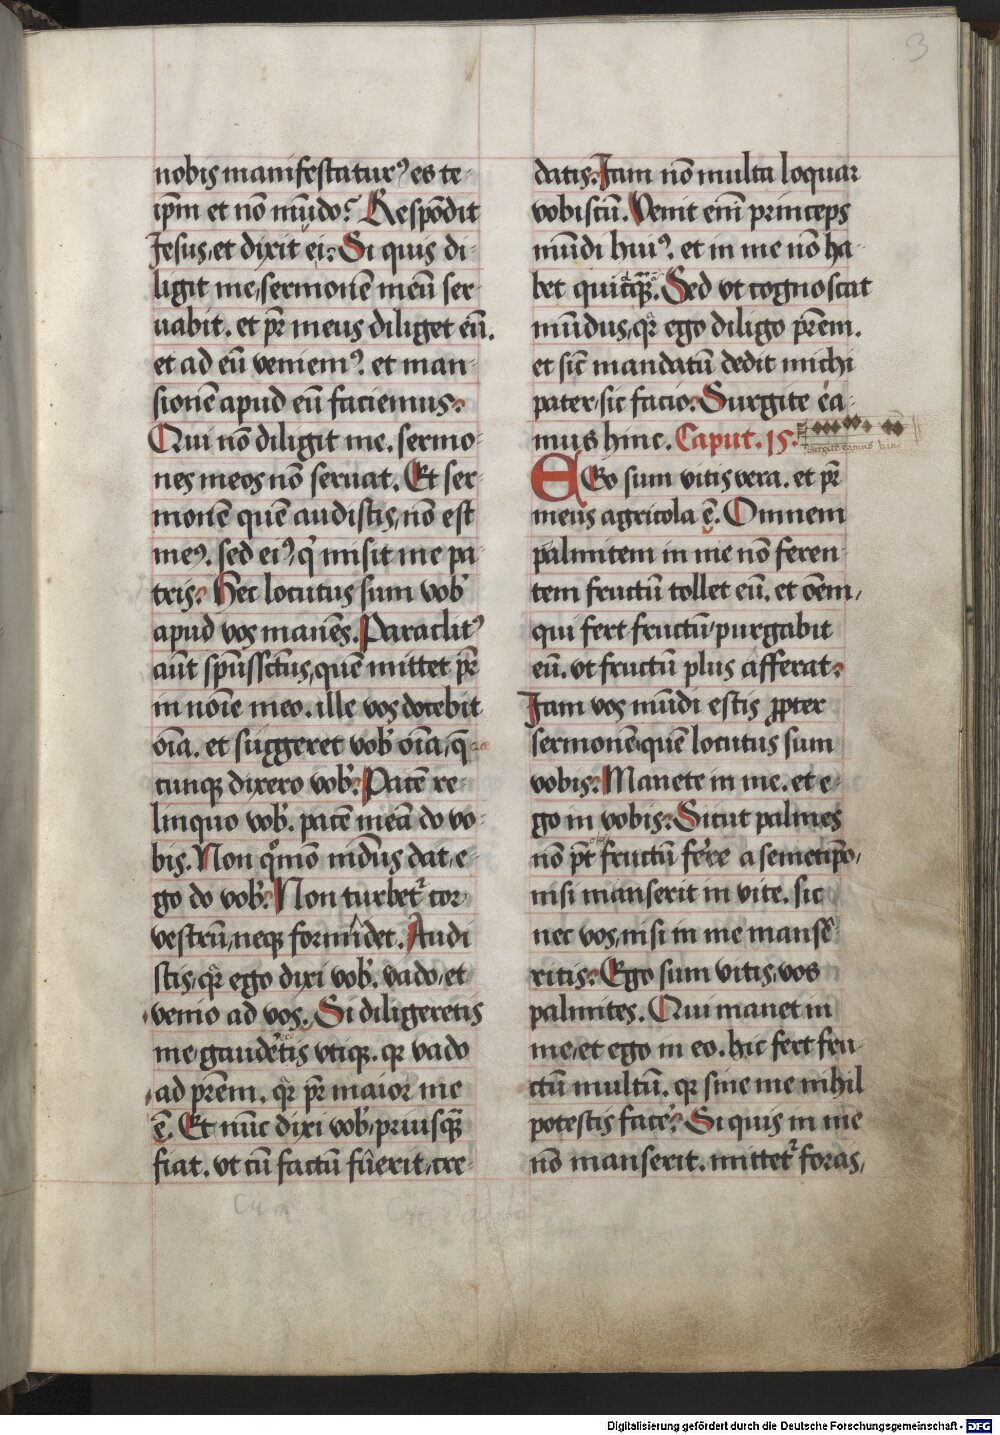 3
nobis manifestaturꝰ es te-
ip̄m et nō mūdo? Respōdit
Jesus, et dixit ei: Si quis di-
ligit me, sermonē meū ser-
uabit. et pr̄ meus diliget eū.
et ad eū veniemꝰ. et man-
sionē apud eū faciemus:
Qui nō diligit me. sermo-
nes meos nō seruat. Et ser-
monē quē audistis, nō est
meꝰ. sed eiꝰ q' misit me pa-
tris: Hec locutus sum vob'
apud vos manēs. Paraclitꝰ
aūt sp̄ussct̄us, quē mittet pr̄
in noīe meo. ille vos docebit
oīa. et suggeret vob' oīa, q̄-
cunqꝫ dixero vob': Pacē re-
linquo vob'. pacē meā do vo-
bis. Non qo͂mō mūdus dat, e-
go do vob': Non turbetᷣ cor
vestrū, neqꝫ formidet. Audi-
stis, qr̄ ego dixi vob'. vado, et
venio ad vos. Si diligeretis
me, gauderetis vtiqꝫ. qꝛ vado
ad prēm. qr̄ pr̄ maior me
ē. Et nūc dixi vob', priusqꝫ̄
fiat. vt cū factū fuerit, cre-
datis: Jam nō multa loquar
vobiscū. Venit enī princeps
mūdi huiꝰ. et in me nō ha-
bet quicqꝫ̄. Sed vt cognoscat
mūdus, qr̄ ego diligo prēm.
et sic̄ mandatū dedit michi
pater, sic facio: Surgite ea-
mus hinc. Caput. 15.
surgite eamus hinc
EGo sum vitis vera. et pr̄
meus agricola ē. Omnem
palmitem in me nō feren-
tem fructū tollet eū. et oēm,
qui fert fructū, purgabit
eū. vt fructū plus afferat:
Jam vos mūdi estis ꝓpter
sermonē, quē locutus sum
vobis: Manete in me. et e-
go in vobis: Sicut palmes
nō pt̄ fructū ferre a semetip̄o,
nisi manserit in vite. sic
nec vos, nisi in me mansē-
ritis: Ego sum vitis, vos
palmites. Qui manet in
me, et ego in eo. hic fert fru-
ctū multū. qꝛ sine me nihil
potestis face': Si quis in me
nō manserit. mittetᷣ foras,
Digitalisierung gefördert durch die Deutsche Forschungsgemeinschaft - DFG